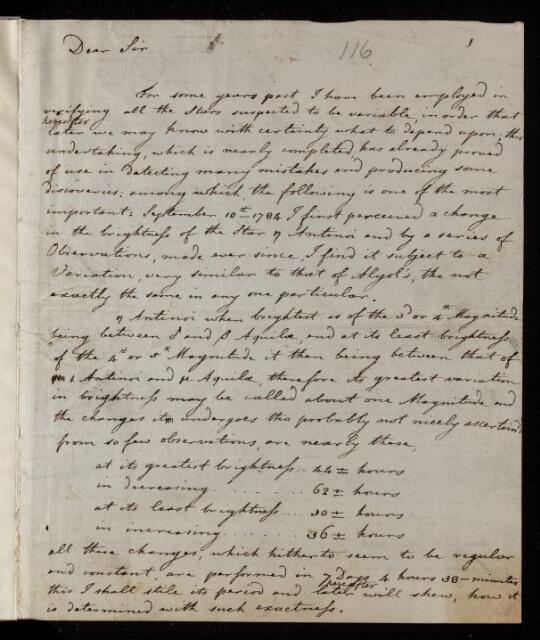 116
1
Dear Sir
For some years past, I have been employed in
verifying all the Stars suspected to be variable, in order that
hereafter
later we may know with certainty what to depend upon; this
undertaking, which is nearly completed, has already proved
of use in detecting many mistakes and producing some
discoveries: among which, the following is one of the most
important: September 10th 1784 I first perceived a change
in the brightness of the Star η Antinoi and by a series of
Observations, made ever since, I find it subject to a
Variation, very similar to that of Algol's, tho not
exactly the same in any one particular.
η Antinoi when brightest is of the 3d or 4th Magnitude
being between δ and β Aquilæ, and at its least brightness
of the 4th or 5th Magnitude it then being between that of
ι Antinoi and μ Aquilæ, therefore its greatest variation
in brightness may be called about one Magnitude and
the changes it undergoes tho probably not nicely ascertaind
from so few observations, are nearly these,
at its greatest brightness... 44± hours
in decreasing........ 62± hours
at its least brightness.... 30± hours
in increasing........ 36± hours
all these changes, which hitherto seem to be regular
and constant, are performed in 7 Days 4 hours 38 minutes
hereafter
this I shall stile its period and later will shew, how it
is determined with such exactness.